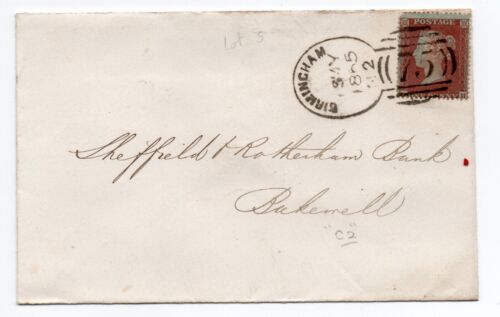 Lot 5
BIRMINGHAM
POSTAGE
75
Sheffield & Rotherham Bank
Bakewell
"C2"